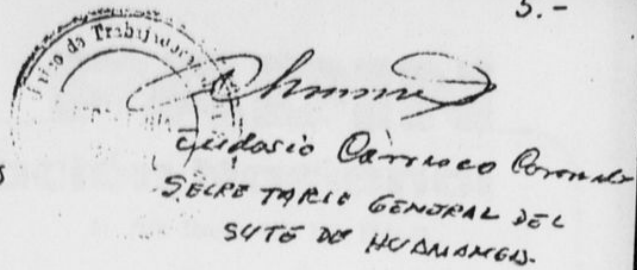 5.-
de Trabajadores
Eudosio Carrasco Coronado
SECRETARIO GENERAL DEL
SUTE DE HUAMANGA.